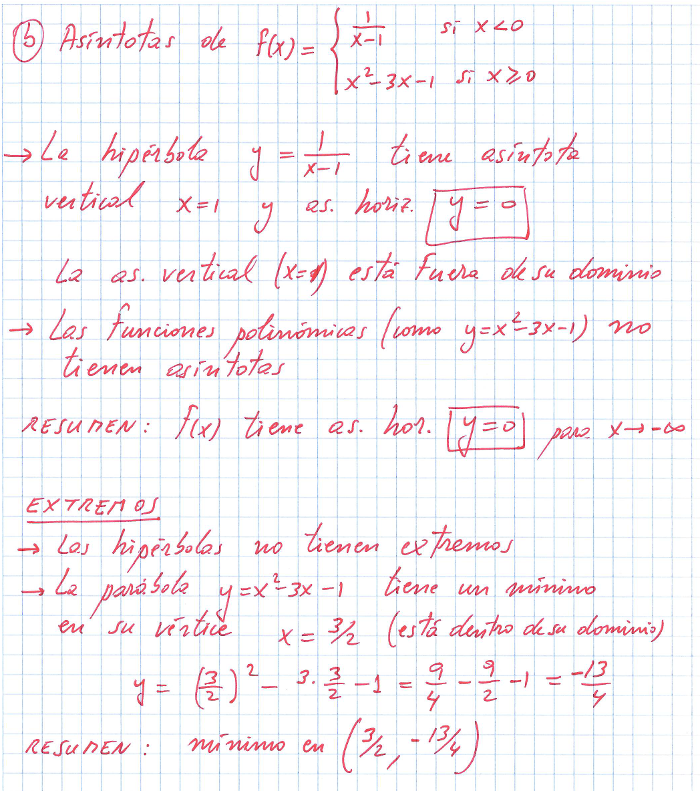 ⓑ Asíntotas de f(x) = { 1/(x-1) si x<0
x²-3x-1 si x≥0
→ La hipérbola y = 1/(x-1) tiene asíntota
vertical x=1 y as. horiz. y=0
La as. vertical (x=1) está fuera de su dominio
→ Las funciones polinómicas (como y=x²-3x-1) no
tienen asíntotas
RESUMEN: f(x) tiene as. hor. y=0 para x→-∞
EXTREMOS
→ Las hipérbolas no tienen extremos
→ La parábola y=x²-3x-1 tiene un mínimo
en su vértice x = 3/2 (está dentro de su dominio)
y = (3/2)² - 3·3/2 - 1 = 9/4 - 9/2 - 1 = -13/4
RESUMEN: mínimo en (3/2, -13/4)